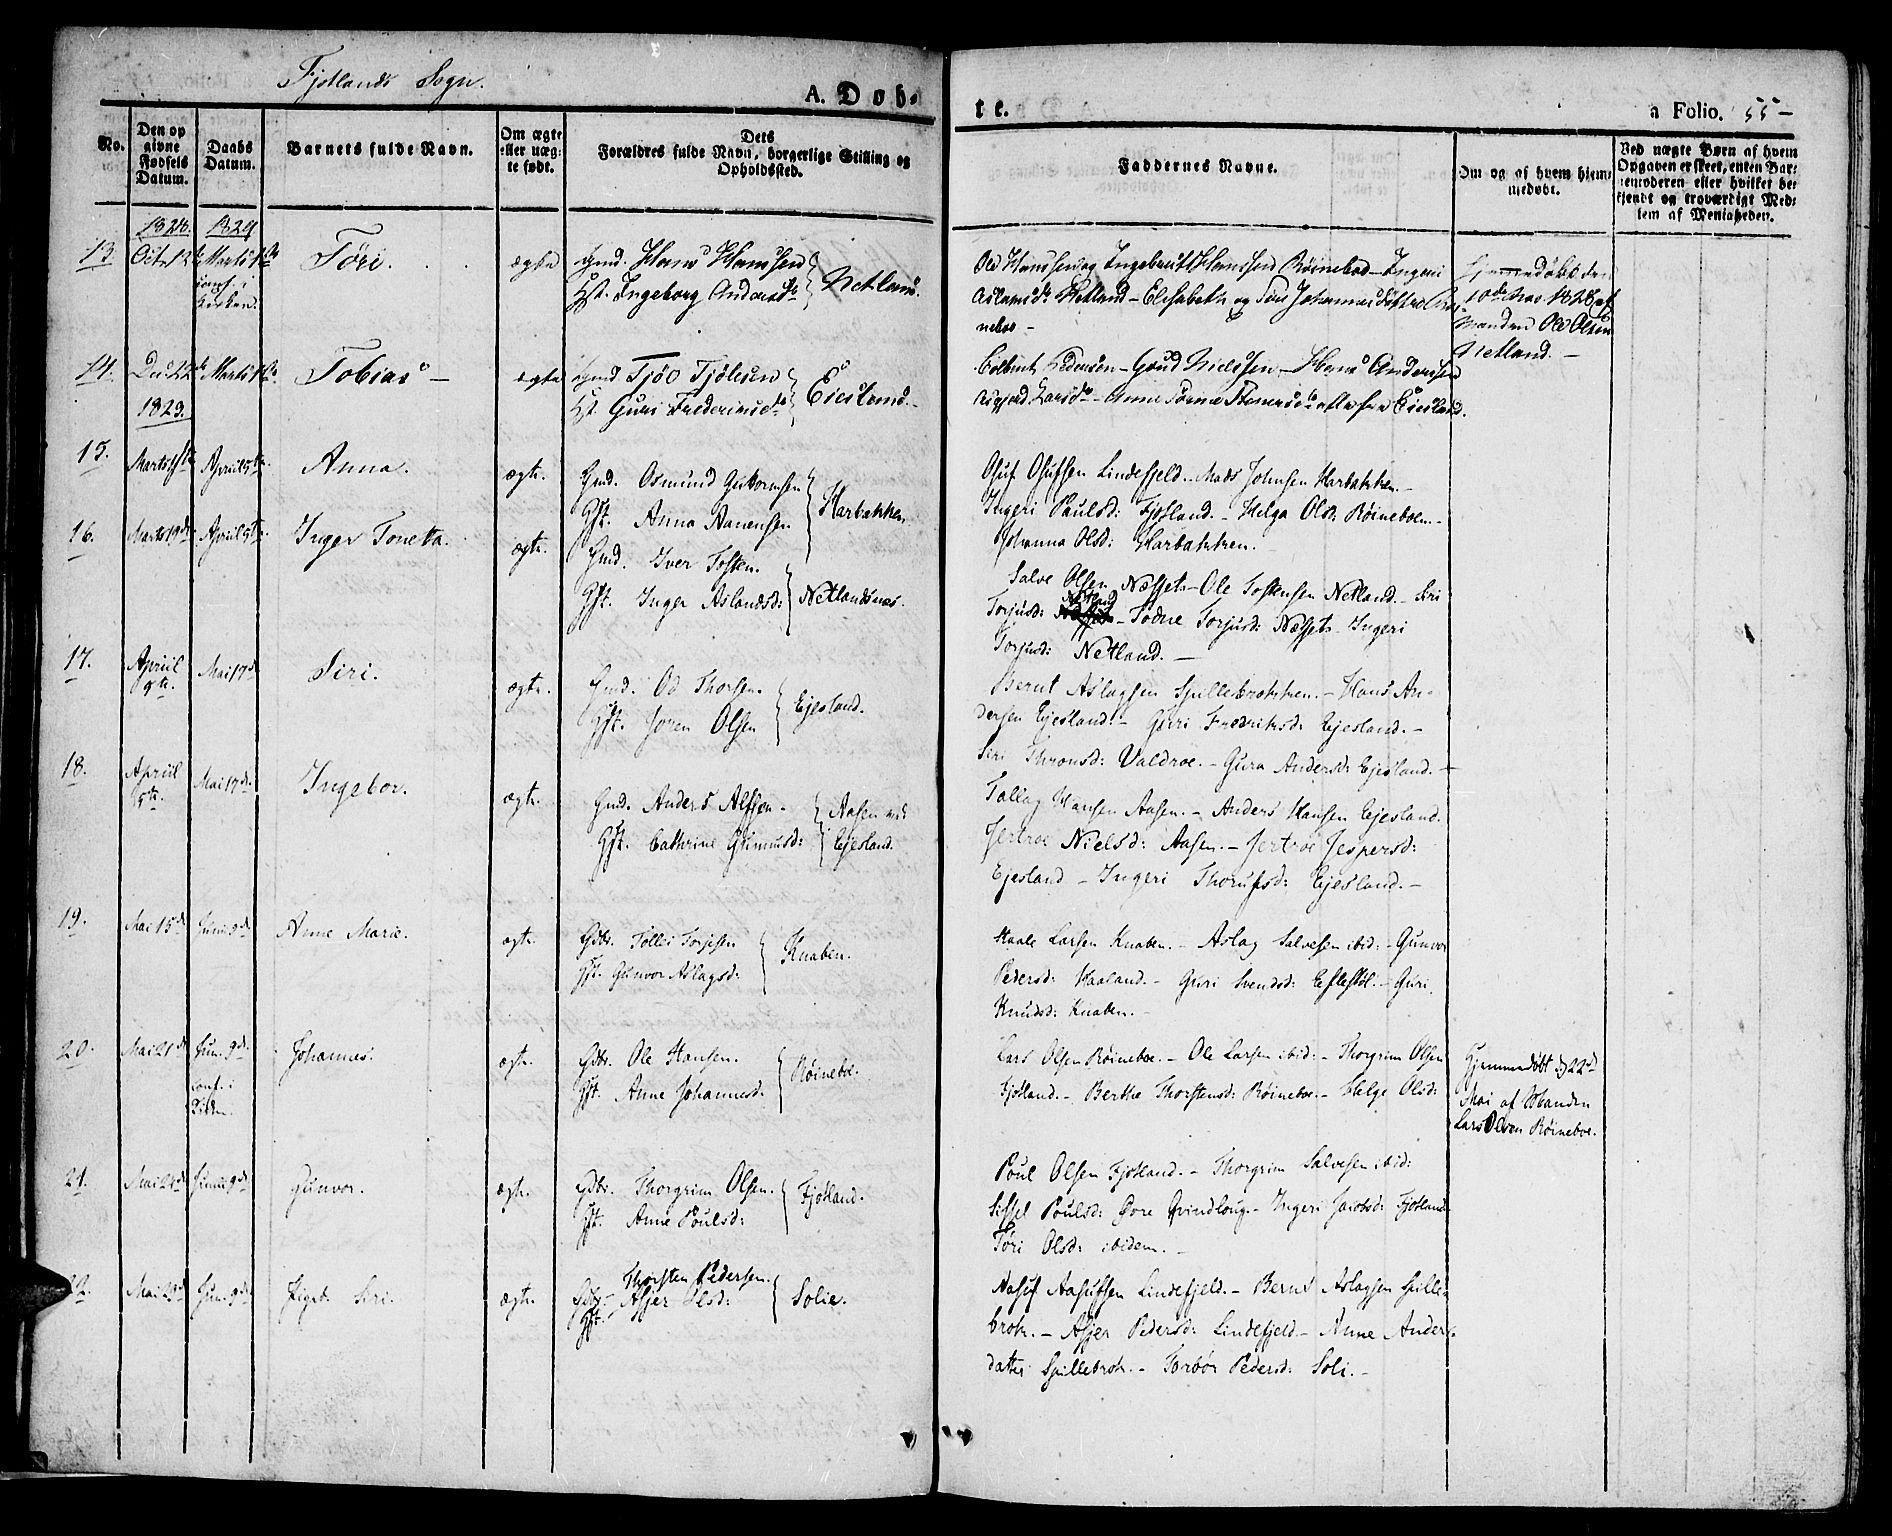 Fjotlands Sogn.
A. Døb-
te.
a Folio. 55 -
No.
Den op
givne
Fødsels
Datum.
Daabs
Datum.
Barnets fulde Navn.
Om ægte
eller uæg-
te født.
Dets
Forældres fulde Navn, borgerlige Stilling og
Opholdssted.
Faddernes Navne.
Om og af hvem hjem-
medøbt.
Ved uægte Børn af hvem
Opgaven er skeet, enten Bar-
nemoderen eller hvilket be-
kjendt og troværdigt Med-
lem af Menigheden.
1828. 1829
13. Oct. Marts Tøri. ægte Gmd. Hans Hanssen
Kirken. Hst. Ingeborg Andersdr Netland.
Ole Hanssen og Ingebret Hanssen Røineboe - Ingeri
Aslansdr Netland - Elisabeth og Siri Johannesdøttre Røi-
neboe -
Hjemmedøbt den
10de Nov 1828 af
Manden Ole Olsen
Netland. -
14. Dec. 22de Marts Tobias - ægte Gmd Tjøo Tjølsen
1829. Hst Guri Fredericsdr Eiesland.
Pedersen - Gund Nielssen - Hans Anderssen
Larsdr - Anne Eiesland.
15. Marts Apriil 5te Anna. ægte. Gmd. Osmund Guttormsen
Gft. Anna Aanensen Harbakken
Oluf Olufsen Lindefjeld. - Mads Johnsen Harbakken. -
Ingeri Paulsd: Fjotland. - Helga Olsd: Røineboen. -
Johanna Olsd: Harbakken. -
16. Marts 19de Apriil 5te. Inger Toneta. ægte. Gmd. Iver Tosten.
Gft. Inger Aslandsd: Netlandsnes.
Salve Olsen Næsset - Ole Tostensen Netland. - Siri
Torjusd: Netland - Todne Torjusd: Næsset - Ingeri
Torjusd: Netland. -
17. Apriil
9te. Mai 17de Siri. ægte. Gmd. Od Thorsen.
Gft. Joren Olsen Ejesland.
Bernt Aslagsen Spillebrokken. - Hans An-
dersen Ejesland. - Guri Fredriksd: Ejesland. -
Siri Thronsd: Valdroe. - Gura Andersd: Ejesland. -
18. Apriil
5te. Mai 17de. Ingebor. ægte. Gmd. Anders Alfsen. Aasen ved
Gft. Cathrine Gunnusd: Ejesland.
Tallag Hansen Aasen. - Anders Hansen Ejesland.
Jertroe Nielsd: Aasen. - Jertroe Jespersd:
Ejesland - Ingeri Ejesland. -
19. Mai 15de Juni 9de Anne Marie. ægte. Gdbr. Tollei Torjesen
Gft. Gunvor Aslagsd: Knaben.
Staale Larsen Knaben. - Aslag Salvesen ibid: - Gunvor
Pedersd: Haaland. - Guri Svendsd: Eftestøl. - Guri
Knudsd: Knaben. -
20. Mai 21de Jun. 9de. Johannes. ægte. Gdbr. Ole Hansen.
conf. i
Kirken. Gft. Anne Johannesd: Røineboe.
Lars Olsen Røineboe. - Ole Larsen ibid: - Thorgrim Olsen
Fjotland. - Berthe Thorstensd: Røineboe. - Helge Olsd:
Hjemmedøbt d 22de
Mai af Manden
Lars Olsen Røineboe.
21. Mai 24de Juni 9de Gunvor. ægte. Gdbr. Thorgrim Olsen.
Gft. Anne Poulsd: Fjotland.
Poul Olsen Fjotland. - Thorgrim Salvesen ibid:
Sissel Poulsd: Øvre Qvindloug. - Ingeri Jacobsd: Fjotland
Tøri Olsd: ibidem. -
22. Mai 23de Jun. 9de Pigeb. Siri. ægte. Gdbr. Thorsten Pedersen.
Gft. Asjer Olsd: Solie.
Aasuf Aasufsen Lindefjeld. - Bernt Aslagsen Spille-
brok. - Asjer Pedersd: Lindefjeld - Anne Anders
datter Spillebrok. - Torbør Pedersd: Soli. -